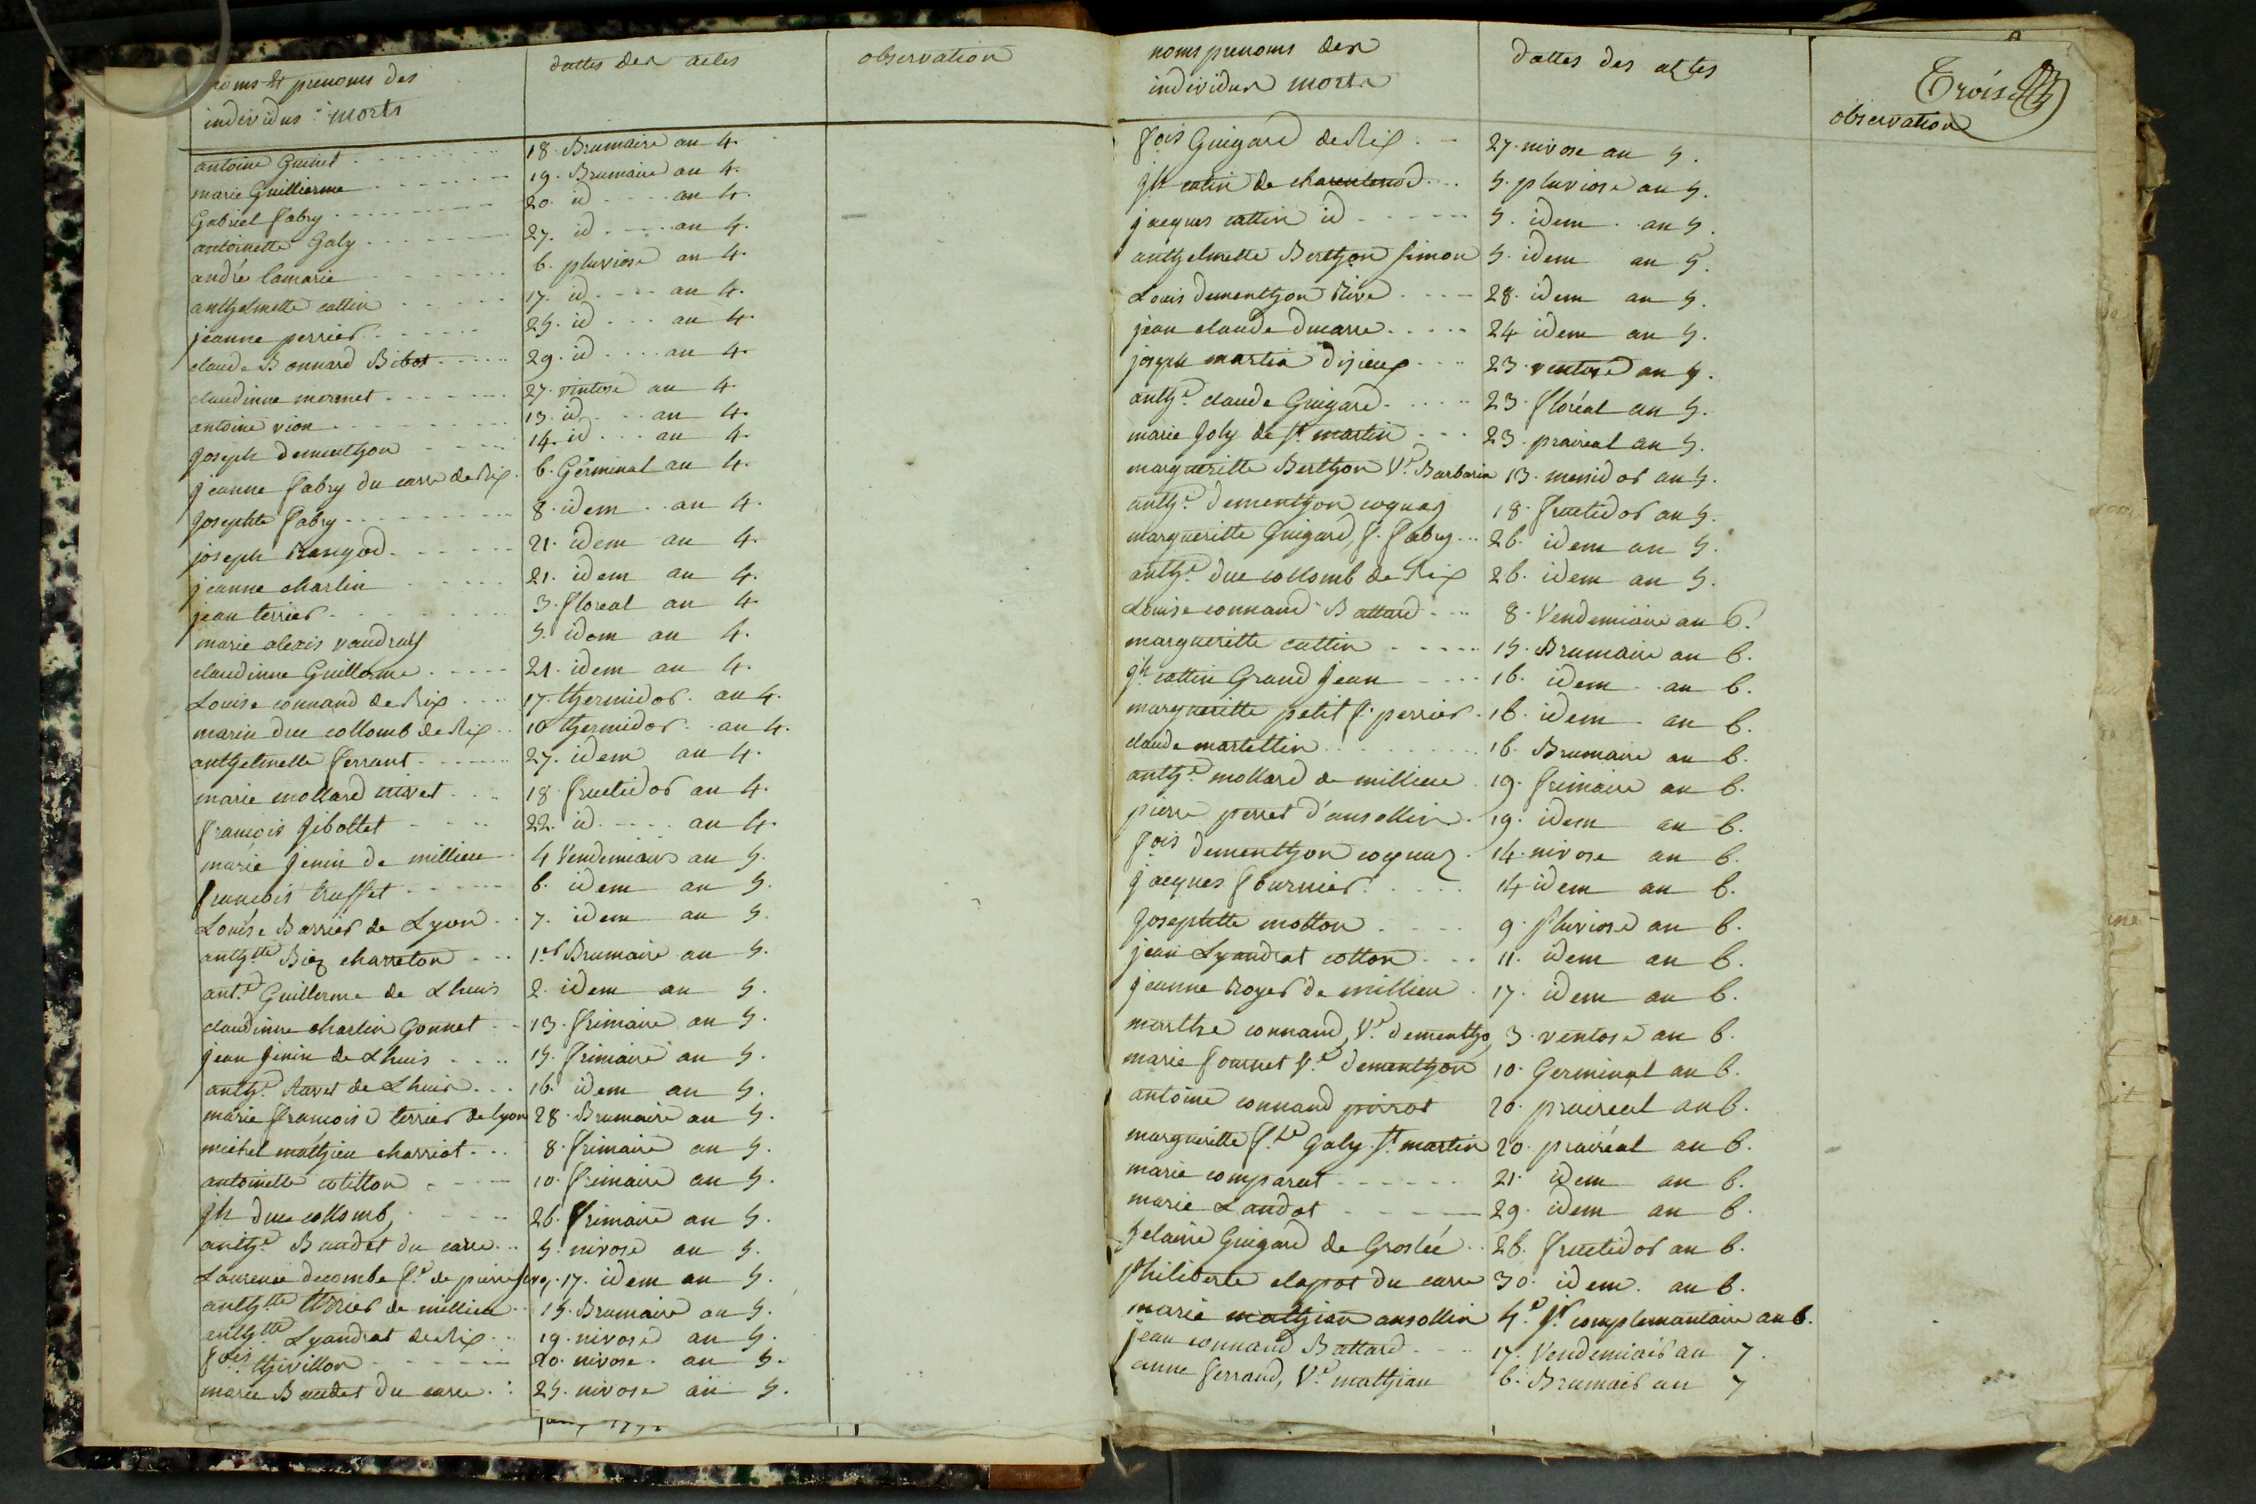 noms & prenoms des
individus morts
dattes des actes
observation
antoine Guinet 18. Brumaire an 4.
marie Guillierme 19. Brumaire an 4.
Gabriel fabry 20. id an 4.
antoinette Galy 27. id an 4.
andré Camarie 6. pluviose an 4.
anthelmette cattin 17. id an 4.
jeanne perrier 25. id an 4.
claude Bonnard Bibot 29. id an 4.
claudinne mornet 27. vintose an 4.
antoine vion 13. id an 4.
Joseph dementhon 14. id an 4.
jeanne fabry du carre de Rix 6. Germinal an 4.
Josephte fabry 8. idem an 4.
joseph Rangod 21. idem an 4.
jeanne charlin 21. idem an 4.
jean terrier 3. floreal an 4.
marie alexis vaudray 5. idem an 4.
claudinne Guillerme 21. idem an 4.
Louise connand de Rix 17. thermidor an 4.
marin duc collomb de Rix 18 thermidor an 4.
anthelmette ferrant 27. idem an 4.
marie mollard nivet 18 fructidor an 4.
francois Jibollet 22. id an 4.
marie Jenin de millieu 4 Vendemiair an 5.
francois truffet 6. idem an 5.
Louise Barrier de Lyon 7. idem an 5.
anthtte Biez charreton 1er Brumaire an 5.
ant.e Guillerme de Lhuis 2. idem an 5.
claudinne charlin Gonnet 13. frimaire an 5.
jean Jenin de Lhuis 15. frimaire an 5.
anth.e Ravet de Lhuis 16. idem an 5.
marie francoise terrier de Lyon 28. Brumaire an 5.
michel mathieu charriot 8. frimaire an 5.
antoinette cotitton 10. frimaire an 5.
jh duc collomb 26. frimaire an 5.
anth.e Baudet du carre 5. nivose an 5.
Laurence decombe f.e de pierre 17. idem an 5.
anthtte terrier de millieu 15. Brumaire an 5.
anthtte Lyandrat de Rix 19. nivose an 5.
fois thivillon 20. nivose an 5.
marie Baudet du carre 25. nivose an 5.
noms prenoms des
individus morts
dattes des actes
Trois
observation
fois Guigard de Rix 27. nivose an 5.
jh catin de charentenod 5. pluviose an 5.
jacques cattin id 5. idem an 5.
anthelmette Berthon Simon 5. idem an 5.
Louis dementhon Rive 28. idem an 5.
jean claude ducarre 24 idem an 5.
joseph martin dizieux 23. ventose an 5.
anth.e claude Guigard 23. floréal an 5.
marie Joly de St martin 23. praireal an 5.
margueritte Berthon V.e Barbarin 13. messidor an 5.
anth.e dementhon coquaz 18. fructidor an 5.
margueritte Guigard f. fabry 26. idem an 5.
anth.e duc collomb de Rix 26. idem an 5.
Louise connand Battard 8. Vendemiaire an 6.
margueritte cattin 15. Brumaire an 6.
jh cattin Grand Jean 16. idem an 6.
margueritte petit f. perrier 16. idem an 6.
claude martettin 16. Brumaire an 6.
anth.e mollard de millieu 19. frimaire an 6.
pierre perret d'ansollin 19. idem an 6.
fois dementhon coquaz 14. nivose an 6.
jacques fournier 14 idem an 6.
Josephtte motton 9. Pluviose an 6.
jean Lyandrat cotton 11. idem an 6.
jeanne Royer de millieu 17. idem an 6.
marthe connand, V.e dementho, 3. ventose an 6.
marie fournet V.e dementhon 10. Germinal an 6.
antoine connand pirrot 20. praireal an 6.
margueritte f.te Galy St martin 20. prairéal an 6.
marie comparet 21. idem an 6.
marie Landot 29. idem an 6.
helaine Guigard de Groslée 26. fructidor an 6.
philiberte clapot du carre 30. idem an 6.
marie mathian ansollin 4.e Jr complemantaire an 6.
jean connand Battard 17. Vendemiair an 7.
anne ferrand, V.e mathian 6. Brumair an 7